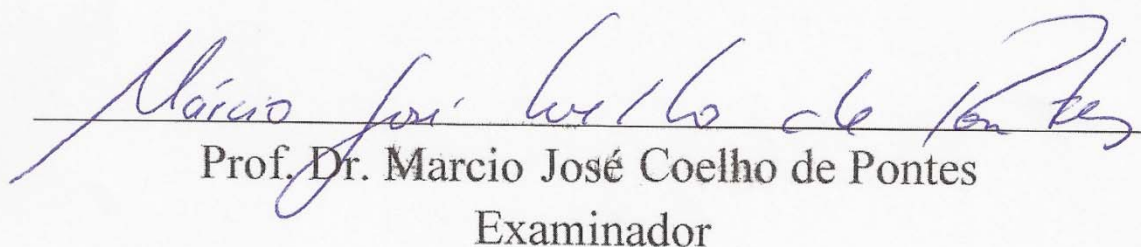 Márcio José Coelho de Pontes
Prof. Dr. Marcio José Coelho de Pontes
Examinador